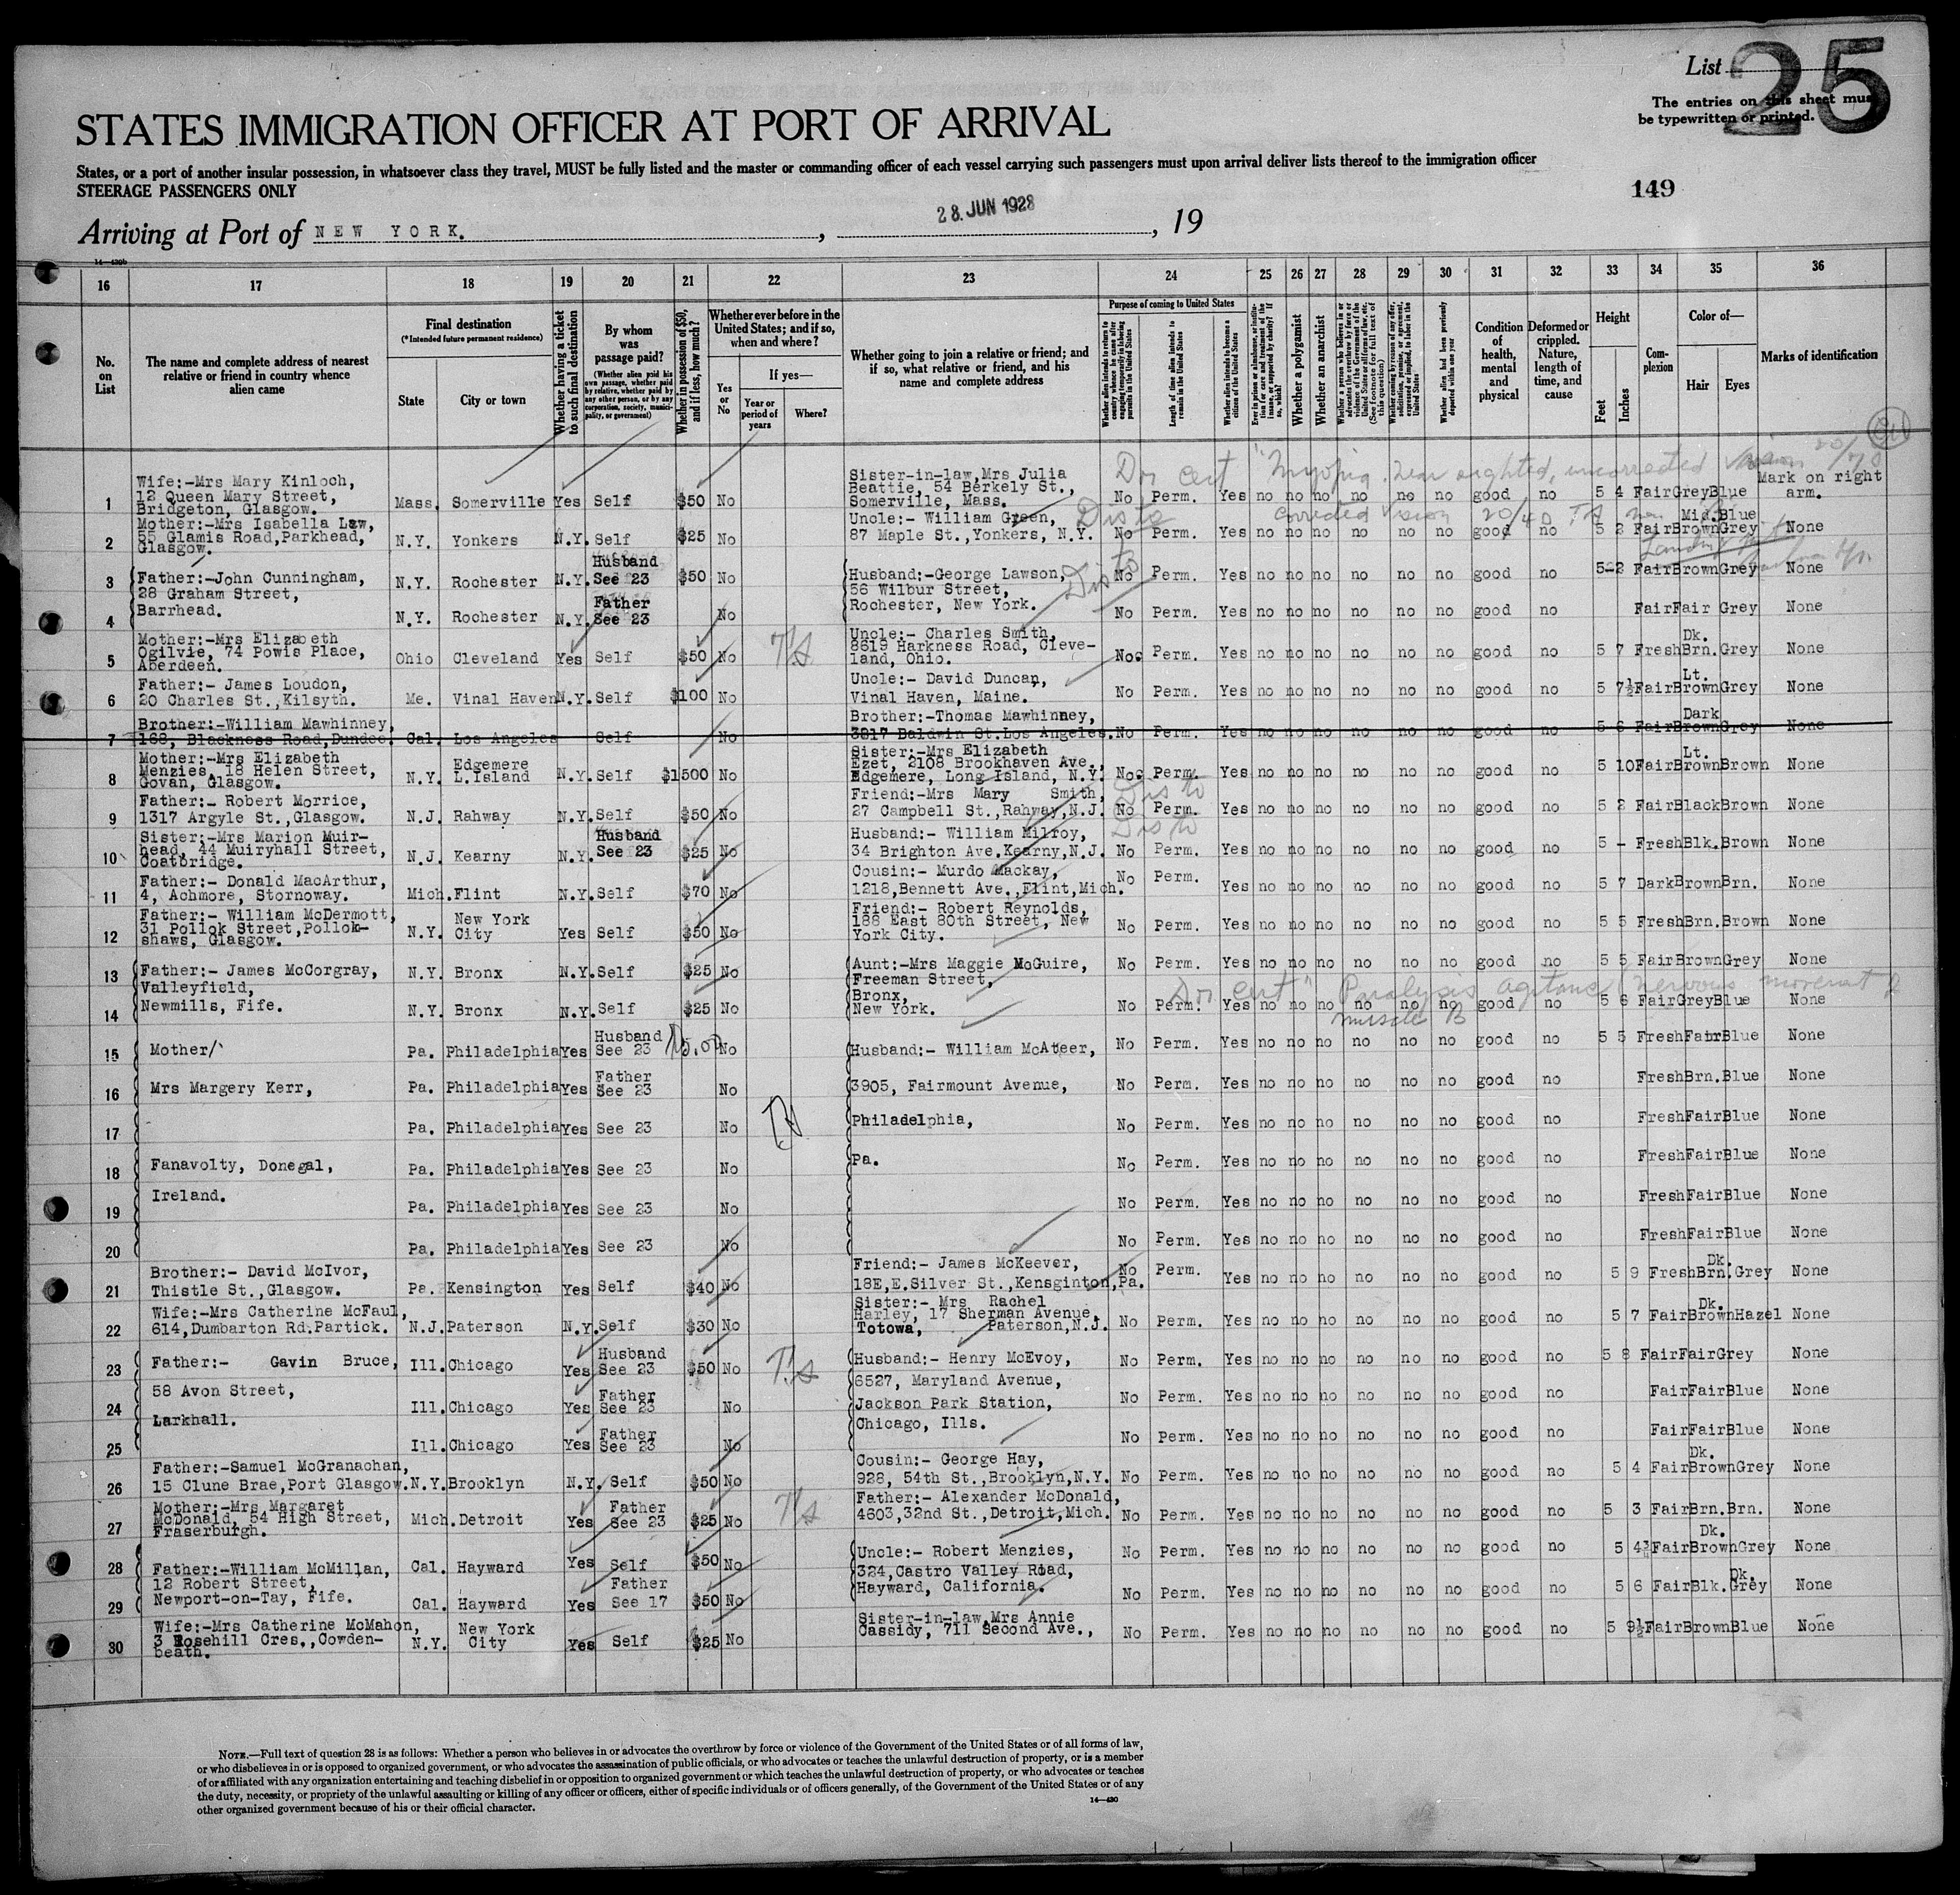 List 25
The entries on this sheet must
be typewritten or printed.
STATES IMMIGRATION OFFICER AT PORT OF ARRIVAL
States, or a port of another insular possession, in whatsoever class they travel, MUST be fully listed and the master or commanding officer of each vessel carrying such passengers must upon arrival deliver lists thereof to the immigration officer
STEERAGE PASSENGERS ONLY
149
Arriving at Port of NEW YORK. , 28. JUN 1928 , 19
14—430b
16 17 18 19 20 21 22 23 24 25 26 27 28 29 30 31 32 33 34 35 36
No. on List
The name and complete address of nearest relative or friend in country whence alien came
Final destination
(*Intended future permanent residence)
State
City or town
Whether having a ticket to such final destination
By whom was passage paid?
(Whether alien paid his own passage, whether paid by relative, whether paid by any other person, or by any corporation, society, municipality, or government)
Whether in possession of $50, and if less, how much?
Whether ever before in the United States; and if so, when and where?
Yes or No
If yes—
Year or period of years
Where?
Whether going to join a relative or friend; and if so, what relative or friend, and his name and complete address
Purpose of coming to United States
Length of time alien intends to remain in the United States
Whether alien intends to become a citizen of the United States
Whether a polygamist
Whether an anarchist
Whether alien had been previously deported within one year
Condition of health, mental and physical
Deformed or crippled. Nature, length of time, and cause
Height
Feet
Inches
Complexion
Color of—
Hair
Eyes
Marks of identification
Dr cert "Myopia. near sighted, uncorrected Vision 20/70
corrected Vision 20/40
1 Wife:-Mrs Mary Kinloch, 12 Queen Mary Street, Bridgeton, Glasgow. Mass. Somerville Yes Self $50 No Sister-in-law,Mrs Julia Beattie, 54 Berkely St., Somerville, Mass. No Perm. Yes no no no no no no good no 5 4 Fair Grey Blue Mark on right arm.
2 Mother:-Mrs Isabella Law, 55 Glamis Road,Parkhead, Glasgow. N.Y. Yonkers N.Y. Self $25 No Uncle:- William Green, 87 Maple St.,Yonkers, N.Y. No Perm. Yes no no no no no no good no 5 2 Fair Mid. Brown Blue Grey None
3 Father:-John Cunningham, 28 Graham Street, N.Y. Rochester N.Y. Husband See 23 $50 No Husband:-George Lawson, 56 Wilbur Street, No Perm. Yes no no no no no no good no 5-2 Fair Brown Grey None
4 Barrhead. N.Y. Rochester N.Y. Father See 23 No Rochester, New York. No Perm. Yes no no no no no no good no Fair Fair Grey None
5 Mother:-Mrs Elizabeth Ogilvie, 74 Powis Place, Aberdeen. Ohio Cleveland Yes Self $50 No Uncle:- Charles Smith, 8619 Harkness Road, Cleveland, Ohio. No Perm. Yes no no no no no no good no 5 7 Fresh Dk. Brn. Grey None
6 Father:- James Loudon, 20 Charles St.,Kilsyth. Me. Vinal Haven N.Y. Self $100 No Uncle:- David Duncan, Vinal Haven, Maine. No Perm. Yes no no no no no no good no 5 7½ Fair Lt. Brown Grey None
7 Brother:-William Mawhinney, 168, Blackness Road,Dundee. Cal. Los Angeles Self No Brother:-Thomas Mawhinney, 3817 Baldwin St.Los Angeles. No Perm. Yes no no no no no no good no 5 6 Fair Dark Brown Grey None
8 Mother:-Mrs Elizabeth Menzies, 18 Helen Street, Govan, Glasgow. N.Y. Edgemere L.Island N.Y. Self $1500 No Sister:-Mrs Elizabeth Ezet, 2108 Brookhaven Ave., Edgemere, Long Island, N.Y. No Perm. Yes no no no no no no good no 5 10 Fair Lt. Brown Brown None
9 Father:- Robert Morrice, 1317 Argyle St.,Glasgow. N.J. Rahway N.Y. Self $50 No Friend:-Mrs Mary Smith, 27 Campbell St.,Rahway,N.J. No Perm. Yes no no no no no no good no 5 2 Fair Black Brown None
10 Sister:-Mrs Marion Muirhead, 44 Muiryhall Street, Coatbridge. N.J. Kearny N.Y. Husband See 23 $25 No Husband:- William Milroy, 34 Brighton Ave.Kearny,N.J. No Perm. Yes no no no no no no good no 5 - Fresh Blk. Brown None
11 Father:- Donald MacArthur, 4, Achmore, Stornoway. Mich. Flint N.Y. Self $70 No Cousin:- Murdo Mackay, 1218,Bennett Ave.,Flint,Mich. No Perm. Yes no no no no no no good no 5 7 Dark Brown Brn. None
12 Father:- William McDermott, 31 Pollok Street,Pollokshaws, Glasgow. N.Y. New York City Yes Self $50 No Friend:- Robert Reynolds, 188 East 80th Street, New York City. No Perm. Yes no no no no no no good no 5 5 Fresh Brn. Brown None
13 Father:- James McCorgray, Valleyfield, N.Y. Bronx N.Y. Self $25 No Aunt:-Mrs Maggie McGuire, Freeman Street, No Perm. Yes no no no no no no good no 5 5 Fair Brown Grey None
Dr. cert" Paralysis agitans (nervous movement of muscle B
14 Newmills, Fife. N.Y. Bronx N.Y. Self $25 No Bronx, New York. No Perm. Yes no no no no no no good no 5 6 Fair Grey Blue None
15 Mother/ Pa. Philadelphia Yes Husband See 23 No Husband:- William McAteer, No Perm. Yes no no no no no no good no 5 5 Fresh Fair Blue None
16 Mrs Margery Kerr, Pa. Philadelphia Yes Father See 23 No 3905, Fairmount Avenue, No Perm. Yes no no no no no no good no Fresh Brn. Blue None
17 Pa. Philadelphia Yes See 23 No Philadelphia, No Perm. Yes no no no no no no good no Fresh Fair Blue None
18 Fanavolty, Donegal, Pa. Philadelphia Yes See 23 No Pa. No Perm. Yes no no no no no no good no Fresh Fair Blue None
19 Ireland. Pa. Philadelphia Yes See 23 No No Perm. Yes no no no no no no good no Fresh Fair Blue None
20 Pa. Philadelphia Yes See 23 No No Perm. Yes no no no no no no good no Fresh Fair Blue None
21 Brother:- David McIvor, Thistle St.,Glasgow. Pa. Kensington Yes Self $40 No Friend:- James McKeever, 18E,E.Silver St.,Kensginton,Pa. No Perm. Yes no no no no no no good no 5 9 Fresh Dk. Brn. Grey None
22 Wife:-Mrs Catherine McFaul, 614,Dumbarton Rd.Partick. N.J. Paterson N.Y. Self $30 No Sister:- Mrs Rachel Harley, 17 Sherman Avenue, Totowa, Paterson,N.J. No Perm. Yes no no no no no no good no 5 7 Fair Dk. Brown Hazel None
23 Father:- Gavin Bruce, Ill. Chicago Yes Husband See 23 $50 No Husband:- Henry McEvoy, 6527, Maryland Avenue, No Perm. Yes no no no no no no good no 5 8 Fair Fair Grey None
24 58 Avon Street, Ill. Chicago Yes Father See 23 No Jackson Park Station, No Perm. Yes no no no no no no good no Fair Fair Blue None
25 Larkhall. Ill. Chicago Yes Father See 23 No Chicago, Ills. No Perm. Yes no no no no no no good no Fair Fair Blue None
26 Father:-Samuel McGranachan, 15 Clune Brae,Port Glasgow. N.Y. Brooklyn N.Y. Self $50 No Cousin:- George Hay, 928, 54th St.,Brooklyn,N.Y. No Perm. Yes no no no no no no good no 5 4 Fair Dk. Brown Grey None
27 Mother:-Mrs Margaret McDonald, 54 High Street, Fraserburgh. Mich. Detroit Yes Father See 23 $25 No Father:- Alexander McDonald, 4603,32nd St.,Detroit,Mich. No Perm. Yes no no no no no no good no 5 3 Fair Brn. Brn. None
28 Father:-William McMillan, 12 Robert Street, Cal. Hayward Yes Self $50 No Uncle:- Robert Menzies, 324,Castro Valley Road, No Perm. Yes no no no no no no good no 5 4¾ Fair Dk. Brown Grey None
29 Newport-on-Tay, Fife. Cal. Hayward Yes Father See 17 $50 No Hayward, California. No Perm. Yes no no no no no no good no 5 6 Fair Blk. Dk. Grey None
30 Wife:-Mrs Catherine McMahon, 3 Rosehill Cres.,Cowdenbeath. N.Y. New York City Yes Self $25 No Sister-in-law,Mrs Annie Cassidy, 711 Second Ave., No Perm. Yes no no no no no no good no 5 9½ Fair Brown Blue None
NOTE.—Full text of question 28 is as follows: Whether a person who believes in or advocates the overthrow by force or violence of the Government of the United States or of all forms of law,
or who disbelieves in or is opposed to organized government, or who advocates the assassination of public officials, or who advocates or teaches the unlawful destruction of property, or is a member
of or affiliated with any organization entertaining and teaching disbelief in or opposition to organized government or which teaches the unlawful destruction of property, or who advocates or teaches
the duty, necessity, or propriety of the unlawful assaulting or killing of any officer or officers, either of specific individuals or of officers generally, of the Government of the United States or of any
other organized government because of his or their official character.
14—430